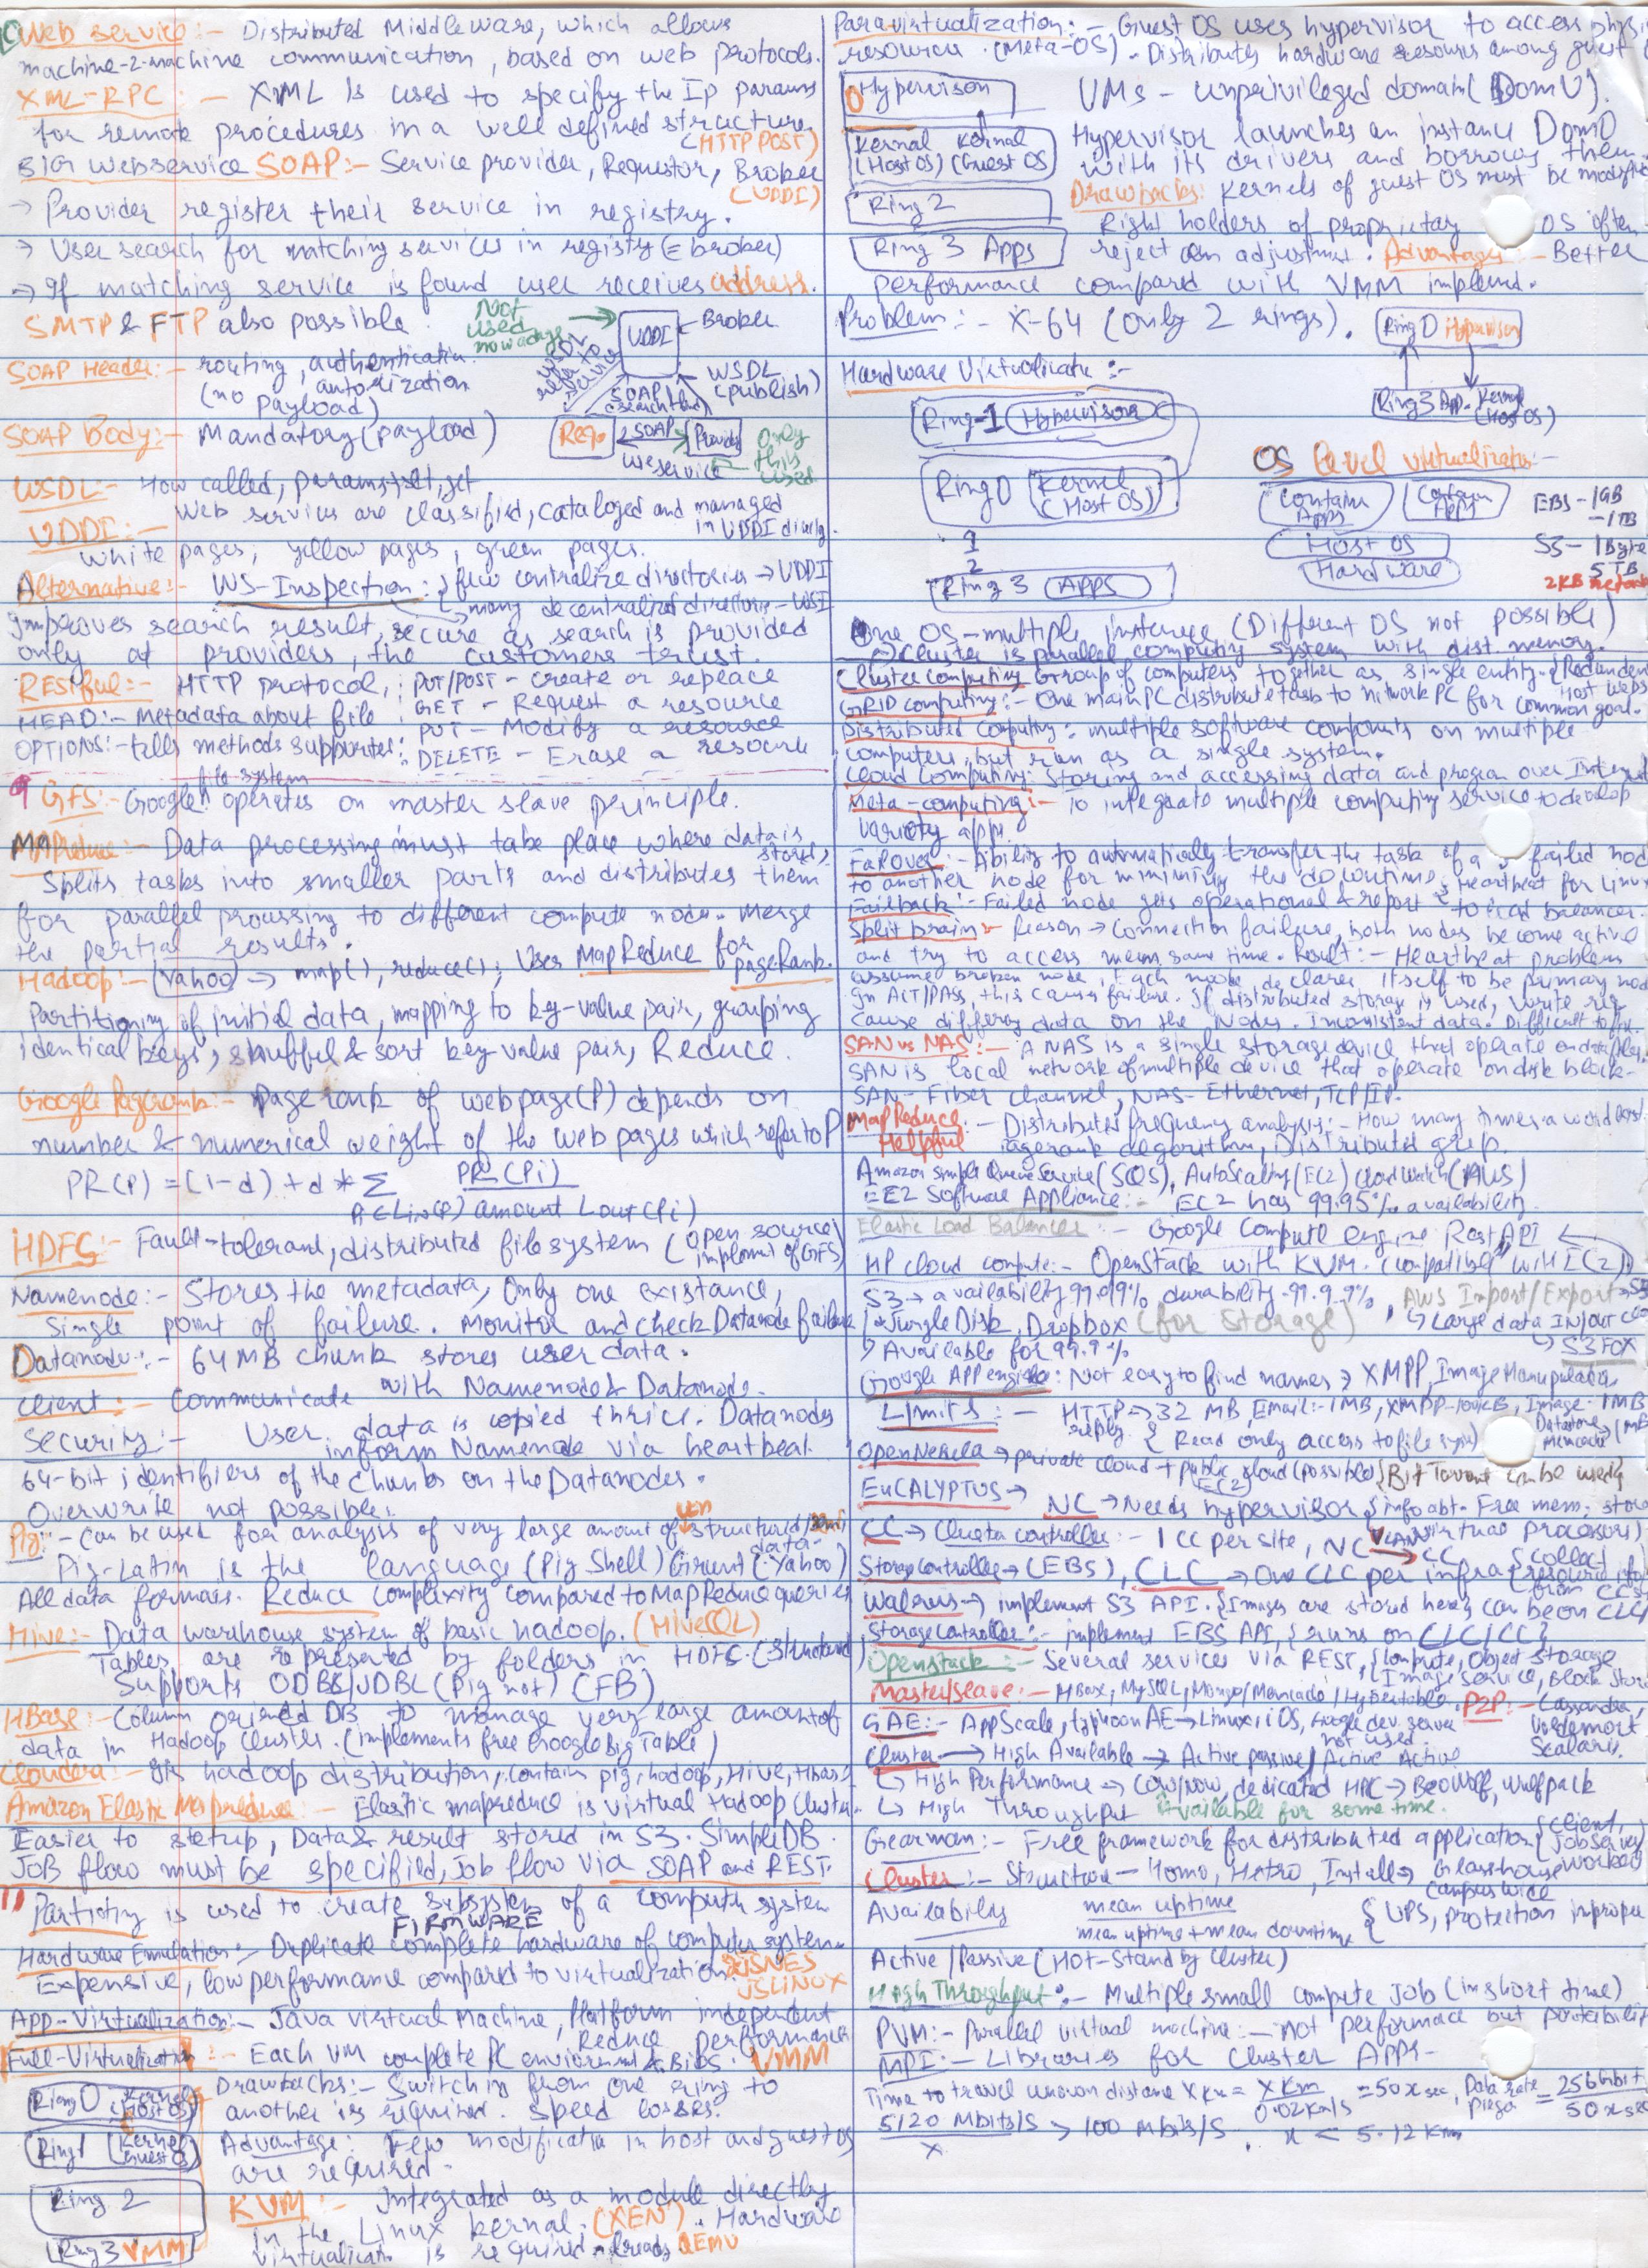 Web service:- Distributed Middleware, which allows
machine-2-machine communication, based on web protocols.
XML-RPC:- XML is used to specify the Ip params
for remote procedures in a well defined structure
(HTTP POST)
BIG Webservice SOAP:- Service provider, Requestor, Broker
(UDDI)
→ Provider register their service in registry.
→ User search for matching services in registry (= broker)
→ If matching service is found user receives address.
SMTP & FTP also possible.
Not used nowadays
UDDI ← Broker
SOAP Header:- routing, authentication
(no autorization
payload)
WSDL (publish)
SOAP
SOAP Body:- Mandatory (payload)
Req. SOAP Provider
use service
Only this used
WSDL:- How called, params, set, get
Web services are classified, cataloged and managed
in UDDI
UDDI:-
White pages, yellow pages, green pages.
Alternative:- WS-Inspection: few centralize directories → UDDI
many decentralized directories - WSI
Improves search result, secure as search is provided
only at providers, the customers trust.
RESTful:- HTTP protocol, PUT/POST - create or replace
HEAD:- Metadata about file GET - Request a resource
PUT - Modify a resource
OPTIONS:- tells methods supported: DELETE - Erase a resource
file system
GFS:- Google operates on master slave principle.
MAPreduce:- Data processing must take place where data is
stored,
Splits tasks into smaller parts and distributes them
for parallel processing to different compute nodes. Merge
the partial results.
Hadoop:- Yahoo → map(), reduce(); Uses MapReduce for
pageRank.
Partitioning of initial data, mapping to key-value pair, grouping
identical keys, shuffel & sort key value pair, Reduce.
Google Pagerank:- Page rank of webpage(P) depends on
number & numerical weight of the web pages which refer to P
PR(P) = (1-d) + d * Σ PR(Pi)
amount Lout(Pi)
HDFS:- Fault-tolerant, distributed file system (open source
implement of GFS)
Namenode:- Stores the metadata, Only one existance,
Single point of failure. Monitor and check Datanode failure
Datanode:- 64 MB chunk stores user data.
Client:- Communicate with Namenode & Datanode.
Security:- User data is copied thrice. Datanodes
inform Namenode via heartbeat.
64-bit identifiers of the chunks on the Datanodes.
Overwrite not possible.
Pig:- Can be used for analysis of very large amount of un structured/semi
data.
Pig-Latin is the language (Pig Shell) Grunt (Yahoo)
All data formats. Reduce complixity compared to MapReduce queries
Hive:- Data warehouse system of basic hadoop. (HiveQL)
Tables are represented by folders in HDFS. (structured)
Supports ODBC/JDBC (Pig not) (FB)
HBase:- Column oriented DB to manage very large amount of
data in Hadoop Cluster. (implements free Google Big Table)
Cloudera:- Its hadoop distribution, contain pig, hadoop, Hive, Hbase
Amazon Elastic Mapreduce:- Elastic mapreduce is virtual Hadoop Cluster.
Easier to setup, Data & result stored in S3. SimpleDB.
JOB flow must be specified, Job flow via SOAP and REST.
11 is used to create subsystem of a computer system
FIRMWARE
Hardware Emulation:- Duplicate complete hardware of computer system.
Expensive, low performance compared to virtualization. JSNES
JSLINUX
App-Virtualization:- Java virtual Machine, Platform independent
Reduce performance
Full-Virtualization:- Each VM complete PC environment & BIOS. VMM
Ring 0 Kernel (Host OS) Drawbacks:- Switching from one ring to
another is required. Speed losses.
Ring 1 Kernel Guest OS Advantage: Few modification in host and guest OS
are required.
Ring 2
KVM:- Integrated as a module directly
in the Linux kernal. (XEN). Hardware
Ring 3 VMM virtualization is required already QEMU
Paravirtualization:- Guest OS uses hypervisor to access
resource. (Meta-OS). Distributes hardware resources among guest
0 Hypervisor VMs - unprivileged domain (DomU).
Kernal (Host OS) Kernal (Guest OS Hypervisor launches an instance Dom0
with its drivers and borrows them.
Ring 2 Drawbacks: Kernels of guest OS must be
Right holders of proprietary OS often
Ring 3 Apps reject an adjustment. Advantages:- Better
performance compared with VMM implemend.
Problem:- X-64 (only 2 rings). Ring 0 Hypervisor
Ring 3 App. Kernel (Host OS)
Hardware Virtualization:-
Ring -1 Hypervisor
Ring 0 Kernel (Host OS)
1
2
Ring 3 APPS
OS level virtualization:-
Contain Apps Contain Apps
Host OS
Hardware
EBS - 1GB
- 1TB
S3 - 1 Byte
5 TB
2KB
One OS - multiple instance (Different OS not possible)
→ Cluster is parallel computing system with dist. memory.
Cluster computing Group of computers together as single entity. {Redundent
Host webs
GRID computing:- One main PC distribute task to network PC for common goal.
Distributed Computing: multiple software componts on multiple
computers, but run as a single system.
Cloud Computing: Storing and accessing data and program over Internet
Meta-computing:- To integrate multiple computing service to develop
variety apps
FailOver:- Ability to automatically transfer the task of a failed node
to another node for minimizing the downtime, Heartbeat for Linux
Failback:- Failed node gets operational & report to load balancer.
Split brain:- Reason → Connection failure, both nodes become active
and try to access mem. same time. Result:- Heartbeat problem
assume broken node, Each node declares itself to be primary node
In ACT/PASS, this causes failure. If distributed storage is used, write req
cause differing data on the nodes. Inconsistent data. Difficult to fix.
SAN vs NAS:- A NAS is a single storage device that operate on data files.
SAN is local network of multiple device that operate on disk block.
SAN - Fiber Channel, NAS - Ethernet, TCP/IP.
MapReduce Helpful:- Distributed frequency analysis:- How many times a word
pagerank algorithm, Distributed grep.
Amazon simple Queue Service (SQS), AutoScaling (EC2) Cloud watch (AWS)
Software Appliance:- EC2 has 99.95% availability.
Elastic Load Balancer:- Google Compute engine Rest API
HP cloud compute:- OpenStack with KVM. (compatible with EC2)
S3 → availability 99.99% durability - 99.9.9% AWS Import/Export → S3
Jungle Disk, Dropbox (for storage) → Large data IN/out
→ Available for 99.9% → S3 FOX
Google APP engine: Not easy to find names → XMPP, Image Manupulation
Limits:- HTTP → 32 MB, Email:- 1MB, XMPP - 100KB, Image - 1MB
reply { Read only access to file sys}
OpenNebula → private cloud + public cloud (possible) {Bit Torrent can be used}
(EC2)
EUCALYPTUS → NC → Needs hypervisor {info abt. Free mem, store
CC → Cluster controller:- 1 CC per site, NC VLAN CC virtual processors)
Storage Controller → (EBS), CLC → One CLC per infra {collect resource info from CCs
Walrus → implement S3 API. {Images are stored here} can be on CLC}
Storage Controller:- implement EBS API, {runs on CLC/CC}
Openstack:- Several services via REST, {Compute, Object Storage
Image service, Block store
Master/slave:- HBase, MySQL, Mongo/Memcache/Hypertable. P2P:- Cassandra,
Voldemort
Scalaris.
GAE:- AppScale, typhoonAE → Linux, iOS, Google dev. server
not used.
Cluster → High Available → Active passive/Active Active
↳ High Performance → COW/NOW, dedicated HPC → Beowolf, wulfpack
↳ High Throughput Available for some time.
Gearman:- Free framework for distributed application {client,
Job Server
worker
Cluster:- Structure - Homo, Hetro, Install → Glasshouse
Campus wide
Availability mean uptime { UPS, protection improper
mean uptime + mean downtime
Active/Passive (HOT-Stand by Cluster)
High Throughput:- Multiple small compute Job (in short time)
PVM:- Parallel virtual machine:- not performace but portability
MPI:- Libraries for Cluster Apps.
Time to travel unknown distance X km = X Km / 0.02 Km/s = 50 x sec, Data rate = 256 Mbit / 50 x sec
5120 Mbits/s / x > 100 Mbits/s. x < 5.12 Km